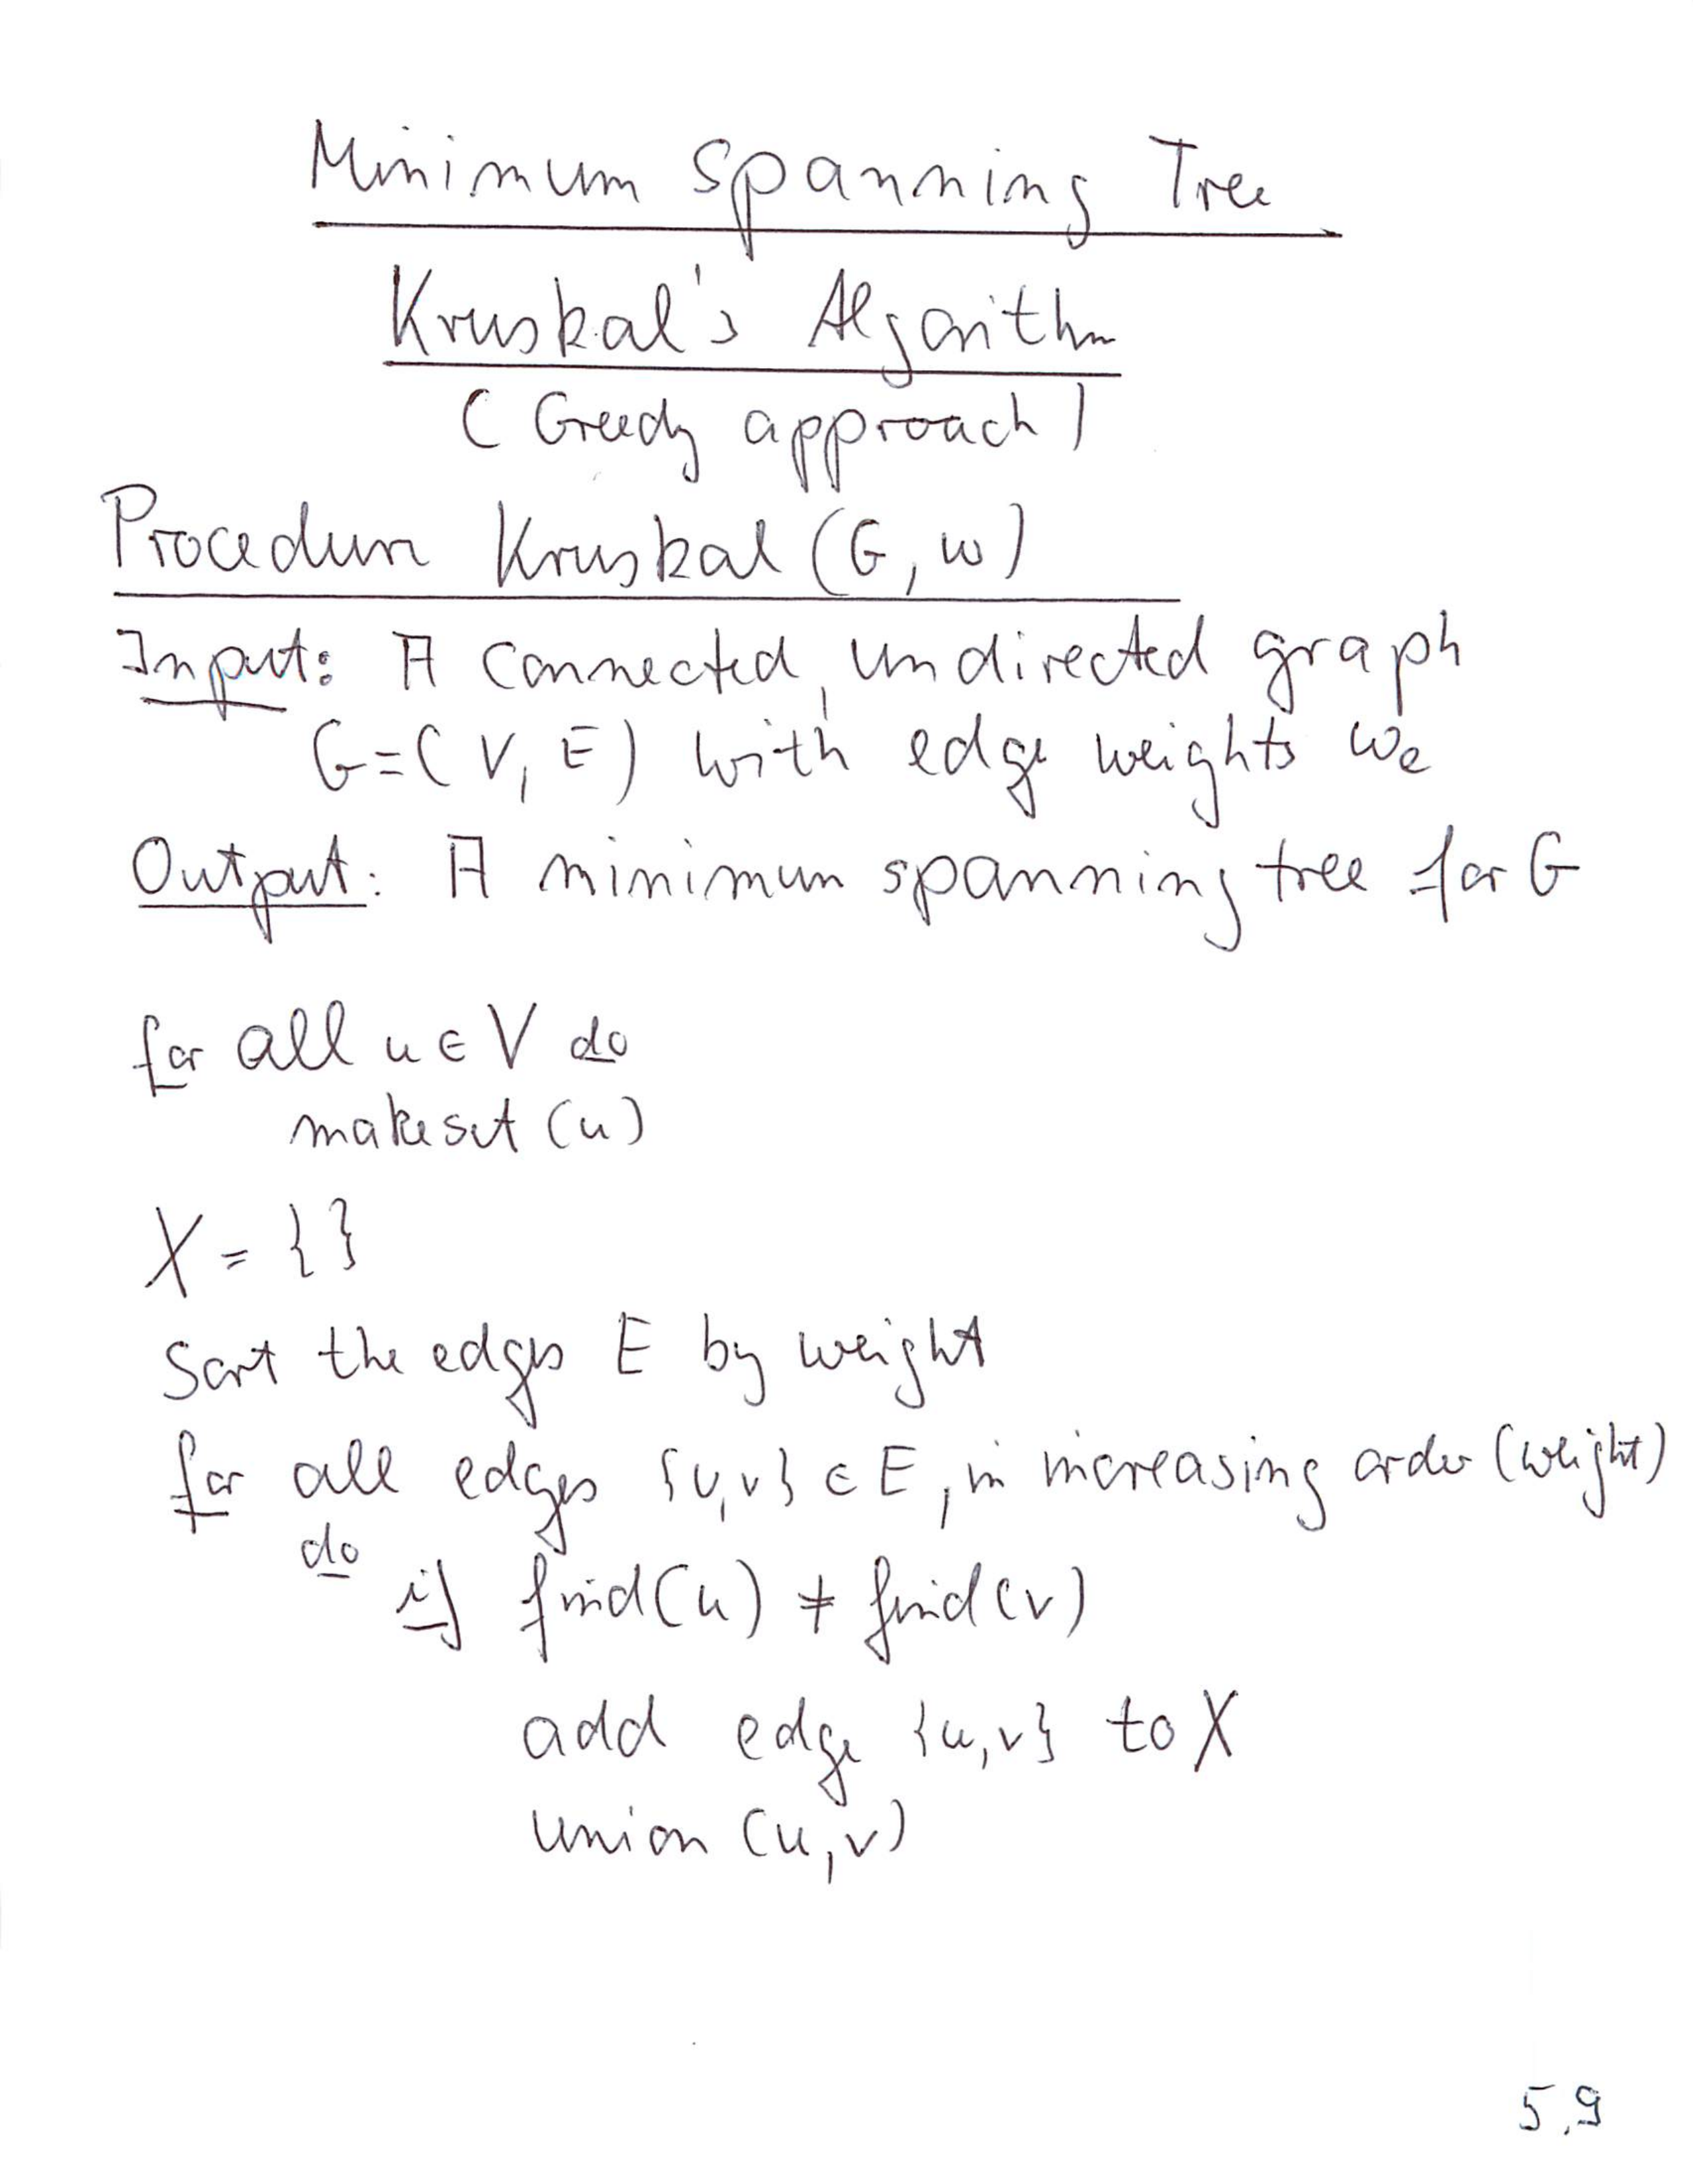 Minimum Spanning Tree
Kruskal's Algorithm
(Greedy approach)
Procedure Kruskal (G, w)
Input: A connected, undirected graph
G=(V, E) with edge weights we
Output: A minimum spanning tree for G
for all u ∈ V do
makeset (u)
X = { }
Sort the edges E by weight
for all edges {u,v} ∈ E, in increasing order (weight)
do
if find(u) ≠ find(v)
add edge {u,v} to X
union (u,v)
5.9